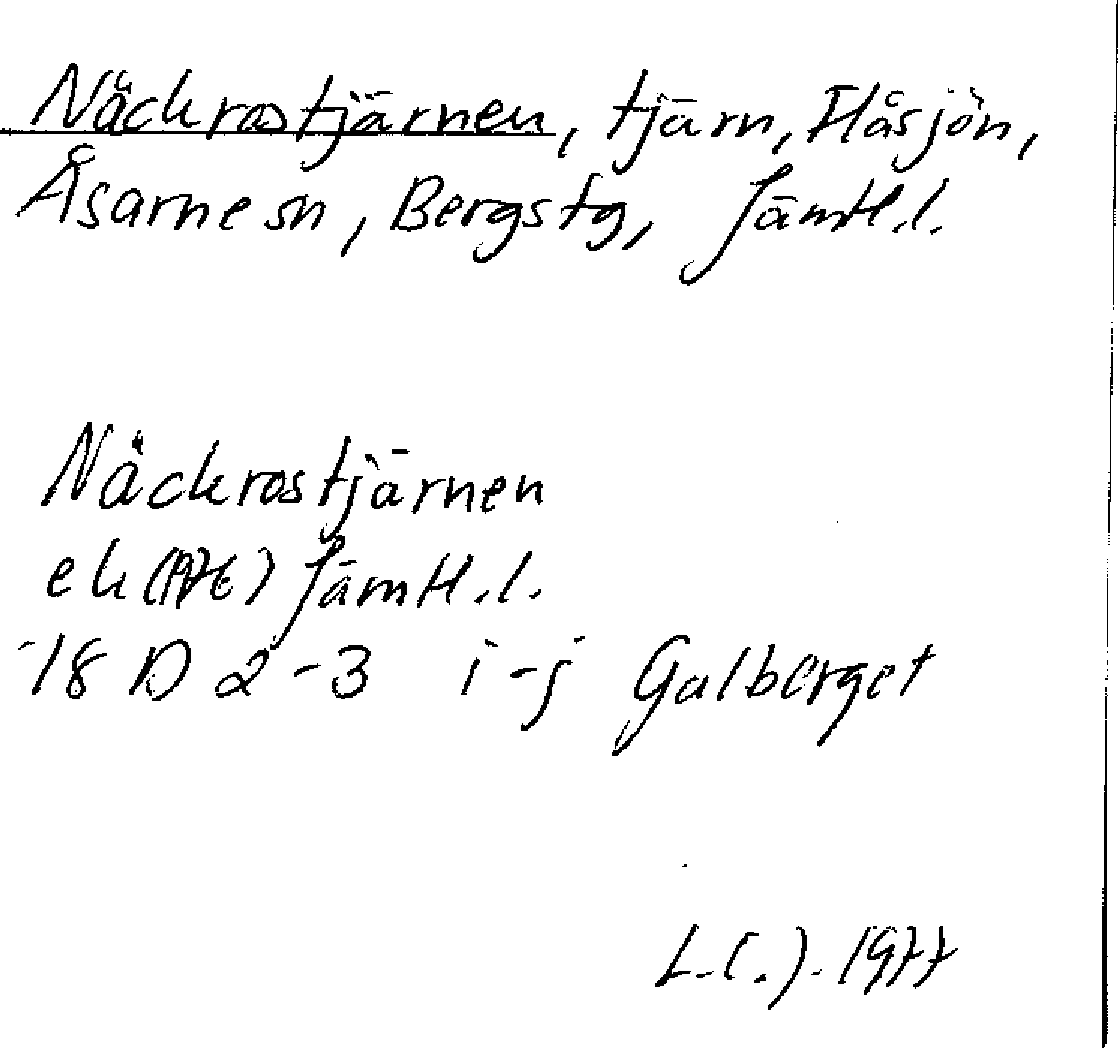 Näckrostjärnen, tjärn, Håsjön,
Åsarne sn, Bergs tg, Jämtl.l.
Näckrostjärnen
ek (1976) Jämtl.l.
18 D 2-3 i-j Galberget
L.(.). 1977